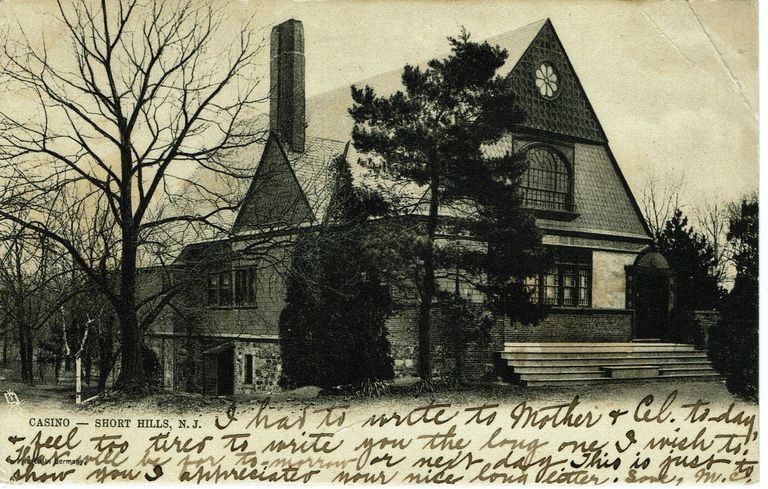 CASINO — SHORT HILLS, N. J.
I had to write to Mother & Cel. to-day
& feel too tired to write you the long one I wish to.
That will be for to-morrow or next day. This is just to
Printed in Germany
show you I appreciated your nice long letter. Love, M. C.